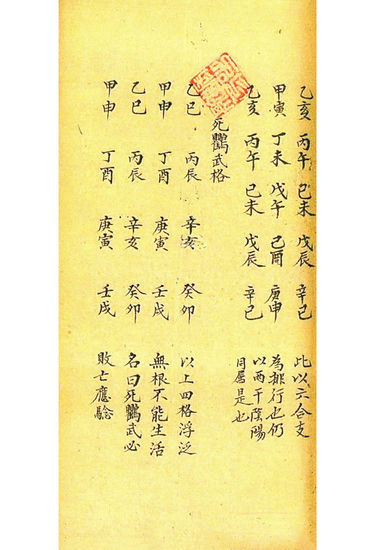 乙亥 丙午 己未 戊辰 辛巳 此以六合支
甲寅 丁未 戊午 己酉 庚申 為排行也仍
乙亥 丙午 己未 戊辰 辛巳 以兩干陰陽
同屬是也
死鸚武格
乙巳 丙辰 辛亥 癸卯 以上四格浮泛
甲申 丁酉 庚寅 壬戌 無根不能生活
乙巳 丙辰 辛亥 癸卯 名曰死鸚武必
甲申 丁酉 庚寅 壬戌 敗亡應騐